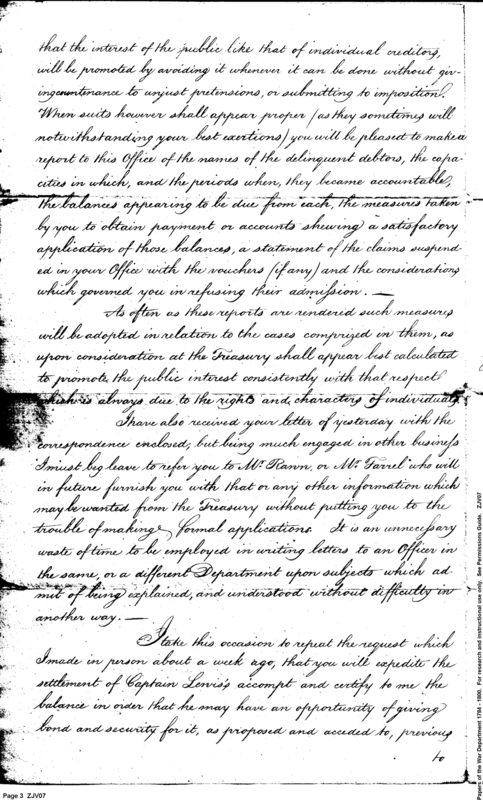 that the interest of the public like that of individual creditors,
will be promoted by avoiding it whenever it can be done without giv-
ing countenance to unjust pretensions, or submitting to imposition.
When suits however shall appear proper (as they sometimes will
notwithstanding your best exertions) you will be pleased to make a
report to this Office of the names of the delinquent debtors, the capa-
cities in which, and the periods when, they became accountable,
the balances appearing to be due from each, the measures taken
by you to obtain payment or accounts shewing a satisfactory
application of those balances, a statement of the claims suspend-
ed in your Office with the vouchers (if any) and the considerations
which governed you in refusing their admission. —
As often as these reports are rendered such measures
will be adopted in relation to the cases comprized in them, as
upon consideration at the Treasury shall appear best calculated
to promote, the public interest consistently with that respect
which is always due to the rights and characters of individuals.
I have also received your letter of yesterday with the
correspondence enclosed; but being much engaged in other business
I must beg leave to refer you to Mr. Rann, or Mr. Farrel who will
in future furnish you with that or any other information which
may be wanted from the Treasury without putting you to the
trouble of making formal applications. It is an unnecessary
waste of time to be employed in writing letters to an Officer in
the same, or a different Department upon subjects which ad-
mit of being explained, and understood without difficulty in
another way. —
I take this occasion to repeat the request which
I made in person about a week ago, that you will expedite the
settlement of Captain Lewis's accompt and certify to me the
balance in order that he may have an opportunity of giving
bond and security for it, as proposed and acceded to, previous
to
Page 3 ZJV07
Papers of the War Department 1784 - 1800. For research and instructional use only. See Permissions Guide. ZJV07